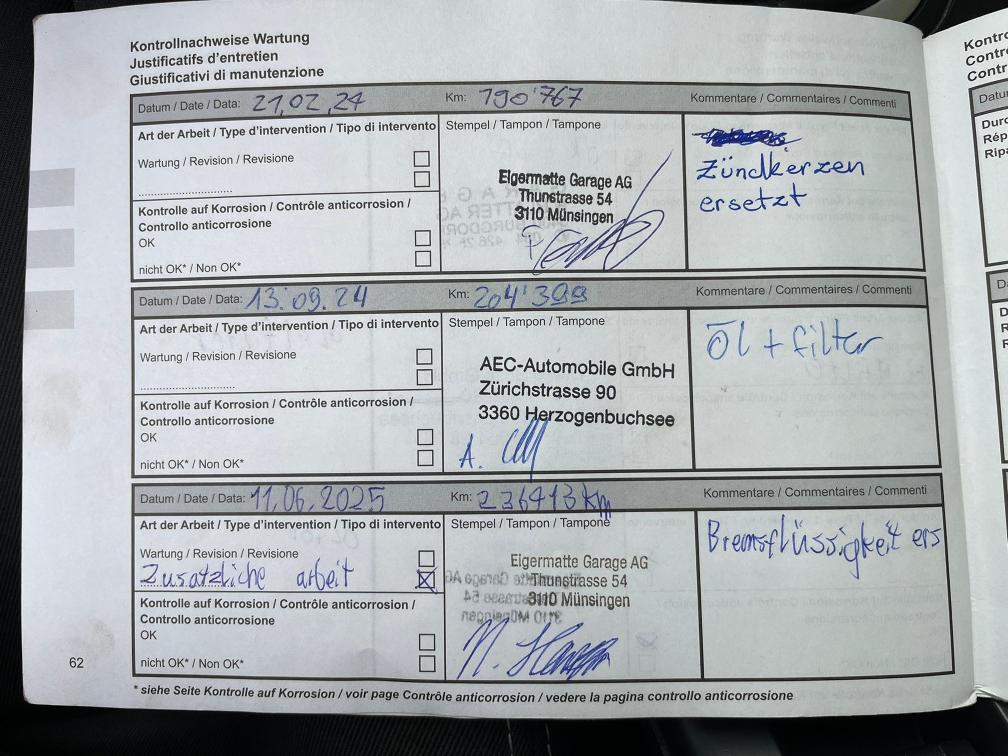 Kontrollnachweise Wartung
Justificatifs d'entretien
Giustificativi di manutenzione
Datum / Date / Data: 21,02,24 Km: 190'767 Kommentare / Commentaires / Commenti
Art der Arbeit / Type d'intervention / Tipo di intervento
Stempel / Tampon / Tampone
Wartung / Revision / Revisione
Zündkerzen
ersetzt
Eigermatte Garage AG
Thunstrasse 54
3110 Münsingen
Kontrolle auf Korrosion / Contrôle anticorrosion /
Controllo anticorrosione
OK
nicht OK* / Non OK*
Datum / Date / Data: 13.09.24 Km: 204'399 Kommentare / Commentaires / Commenti
Art der Arbeit / Type d'intervention / Tipo di intervento
Stempel / Tampon / Tampone
Wartung / Revision / Revisione
Öl + filter
AEC-Automobile GmbH
Zürichstrasse 90
3360 Herzogenbuchsee
Kontrolle auf Korrosion / Contrôle anticorrosion /
Controllo anticorrosione
OK
nicht OK* / Non OK*
A.
Datum / Date / Data: 11.06.2025 Km: 236413 km Kommentare / Commentaires / Commenti
Art der Arbeit / Type d'intervention / Tipo di intervento
Stempel / Tampon / Tampone
Wartung / Revision / Revisione
Zusatzliche arbeit
Bremsflüssigkeit ers
Eigermatte Garage AG
Thunstrasse 54
3110 Münsingen
Kontrolle auf Korrosion / Contrôle anticorrosion /
Controllo anticorrosione
OK
nicht OK* / Non OK*
62
* siehe Seite Kontrolle auf Korrosion / voir page Contrôle anticorrosion / vedere la pagina controllo anticorrosione